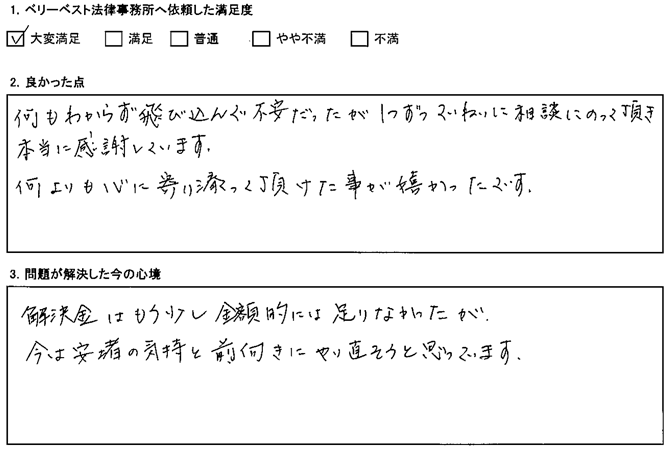 1. ベリーベスト法律事務所へ依頼した満足度
☑ 大変満足 □ 満足 □ 普通 □ やや不満 □ 不満
2. 良かった点
何もわからず飛び込んで不安だったが1つずつていねいに相談にのって頂き
本当に感謝しています。
何よりも心に寄り添って頂けた事が嬉かったです。
3. 問題が解決した今の心境
解決金はもう少し金額的には足りなかったが、
今は安堵の気持と前向きにやり直そうと思っています。